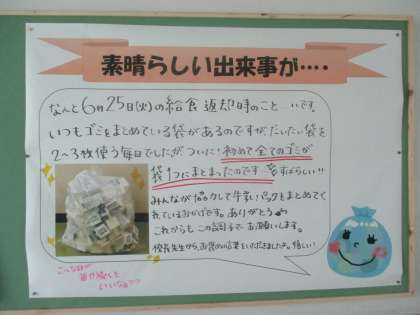 素晴らしい出来事が・・・・
なんと6月25日(火)の給食返却時のこと…です。
いつもゴミをまとめている袋があるのですが、だいたい袋を
2～3枚使う毎日でしたが、ついに！初めて全てのゴミが
袋1つにまとまったのです…皆すばらしい!!
みんなが協力して牛乳パックをまとめてく
れているおかげです。ありがとう♪
これからもこの調子でお願いします。
校長先生から、お褒めの言葉をいただきましたよ。嬉しい！
こんな日が
毎日続くと
いいな??